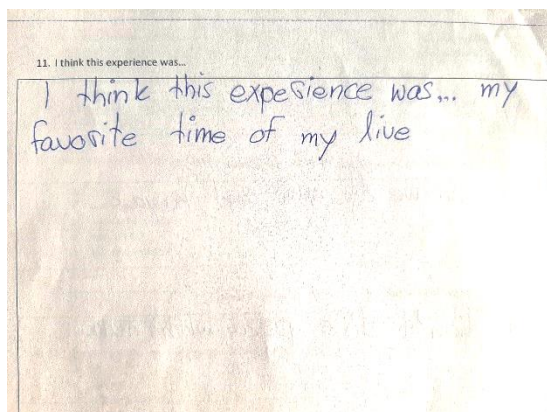 11. I think this experience was...
I think this experience was... my
favorite time of my live